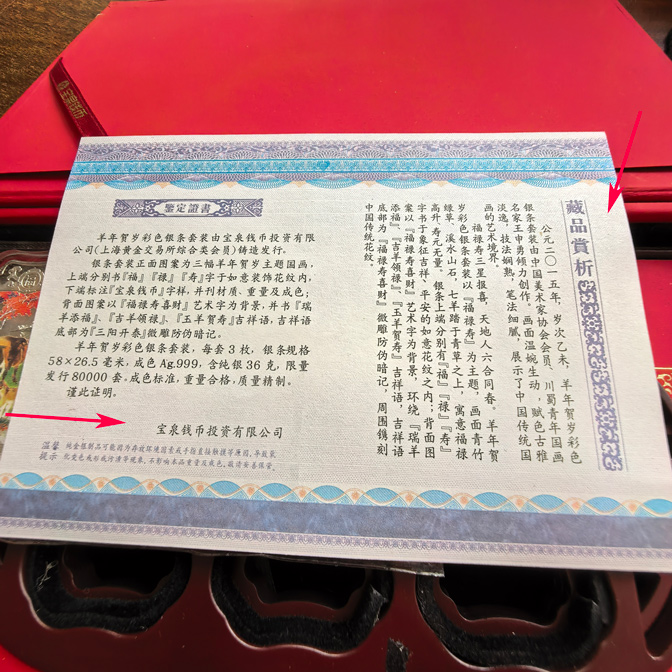 鉴定證書
羊年贺岁彩色银条套装由宝泉钱币投资有限
公司(上海黄金交易所综合类会员)铸造发行。
银条套装正面图案为三幅羊年贺岁主题国画，
上端分别书『福』『禄』『寿』字于如意装饰花纹内，
下端标注『宝泉钱币』字样，并刊材质、重量及成色；
背面图案以『福禄寿喜财』艺术字为背景，并书『瑞
羊添福』、『吉羊领禄』、『玉羊贺寿』吉祥语，吉祥语
底部为『三阳开泰』微雕防伪暗记。
羊年贺岁彩色银条套装，每套3枚，银条规格
58×26.5毫米，成色Ag.999，含纯银36克，限量
发行80000套。成色标准，重量合格，质量精制。
谨此证明。
宝泉钱币投资有限公司
温馨提示
纯金银制品可能因为存放环境因素或手指直接触摸等原因，导致氧
化变色或形成污渍等现象，不影响本品重量及成色，敬请妥善保管。
藏品赏析
公元二〇一五年，岁次乙未，羊年贺岁彩色
银条套装由中国美术家协会会员、川蜀青年国画
名家王申勇倾力创作。画面温婉生动，赋色古雅
淡逸，技法娴熟，笔法细腻，展示了中国传统国
画的艺术境界。
福禄寿三星报喜，天地人六合同春。羊年贺
岁彩色银条套装以『福禄寿』为主题，画面青竹
绿草，溪水山石，七羊踏于青草之上，寓意福禄
高升，寿元无量。银条上端分别有『福』『禄』『寿』
字书于象征吉祥、平安的如意花纹之内；背面图
案以『福禄寿喜财』艺术字为背景，环绕『瑞羊
添福』、『吉羊领禄』、『玉羊贺寿』吉祥语，吉祥语
底部为『福禄寿喜财』微雕防伪暗记，周围镌刻
中国传统花纹。